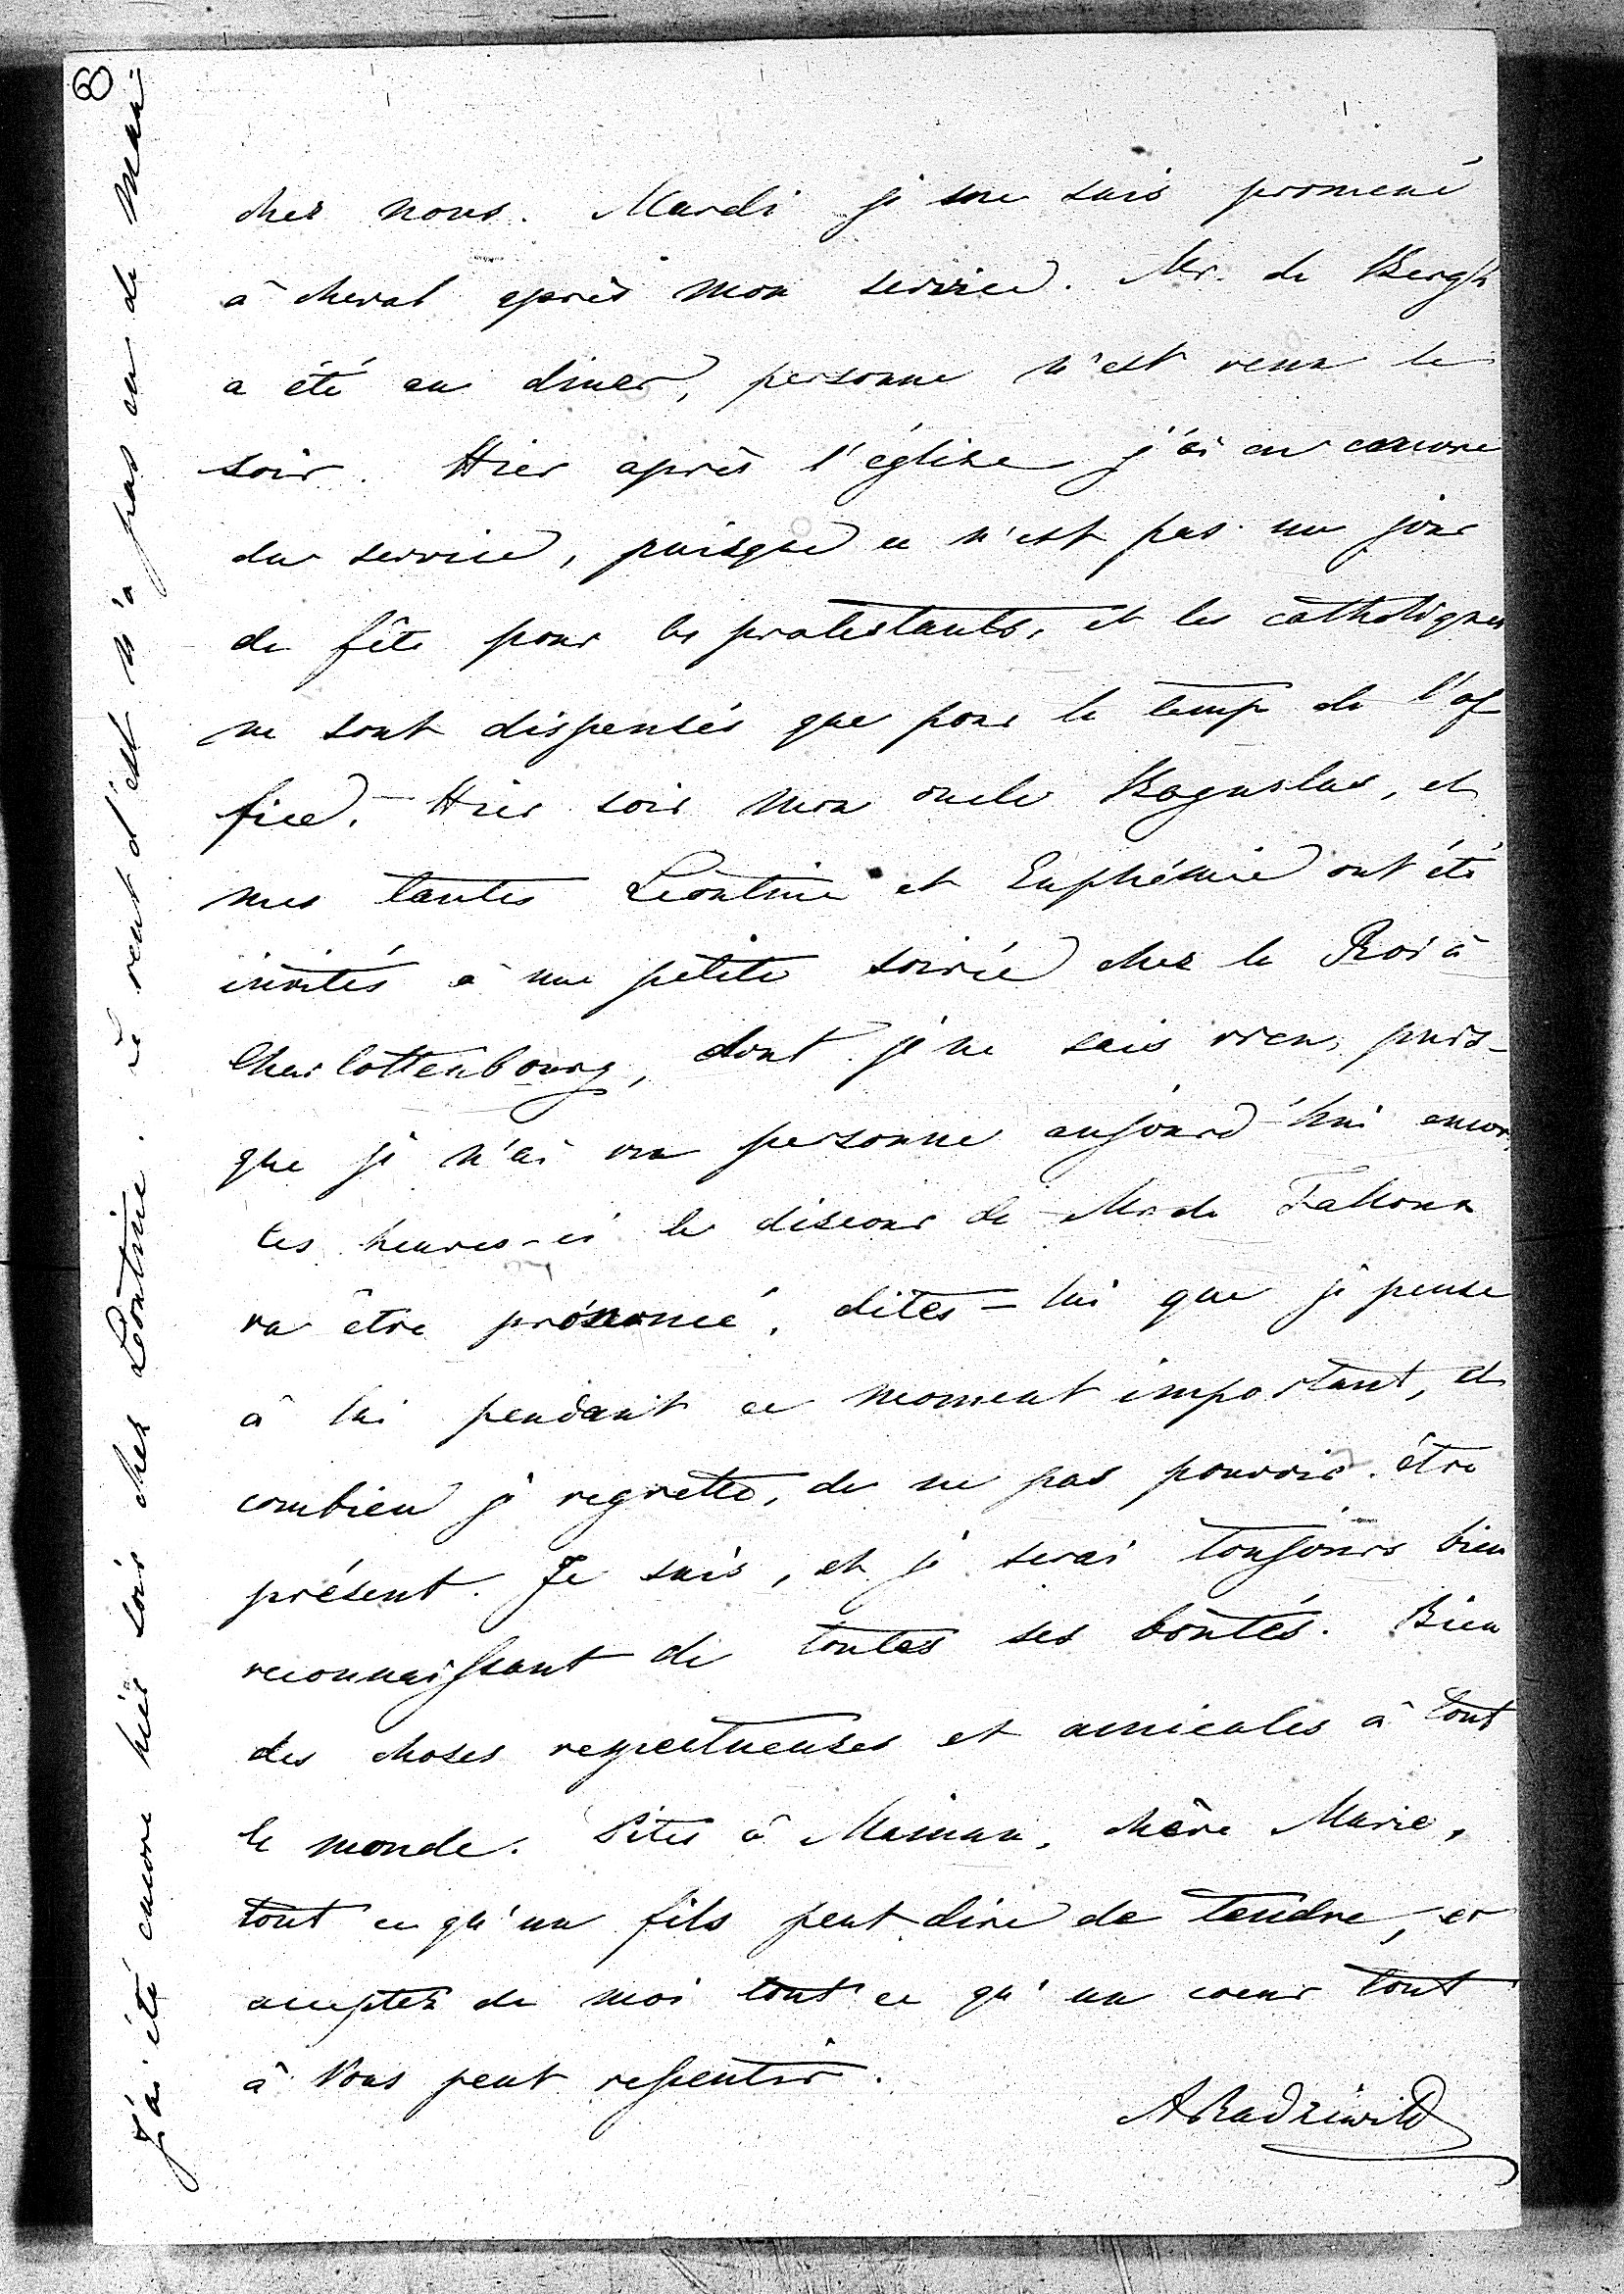 8
chez nous. Mardi je me suis promené
à cheval après mon service. Mr. de Bergh
a été au diner, personne n'est venu le
soir. Hier après l'église j'ai eu encore
du service, puisque ce n'est pas un jour
de fête pour les protestants, et les catholiques
ne sont dispensés que pour le temp de l'of
fice. – Hier soir mon oncle Boguslas, et
mes tantes Léontine et Euphémie ont été
invités à une petite soirée chez le Roi à
Charlottenbourg, dont je ne sais rien, puis-
que je n'ai vu personne aujourd'hui encor,
ces heures-ci le discour de Mr de Falloux
va être prononcé, dites-lui que je pense
à lui pendant ce moment important, et
combien je regrette, de ne pas pouvoir être
présent. Je suis, et je serai toujours bien
reconnaissant de toutes ses bontés. Bien
des choses respectueuses et amicales à tout
le monde. Dites à Maman, chère Marie,
tout ce qu'un fils peut dire de tendre, et
acceptez de moi tout ce qu'un coeur tout
à Vous peut ressentir.
ARadziwill
J'ai été encore hier soir chez Léontine. le vent d'est n'a pas eu de mau-